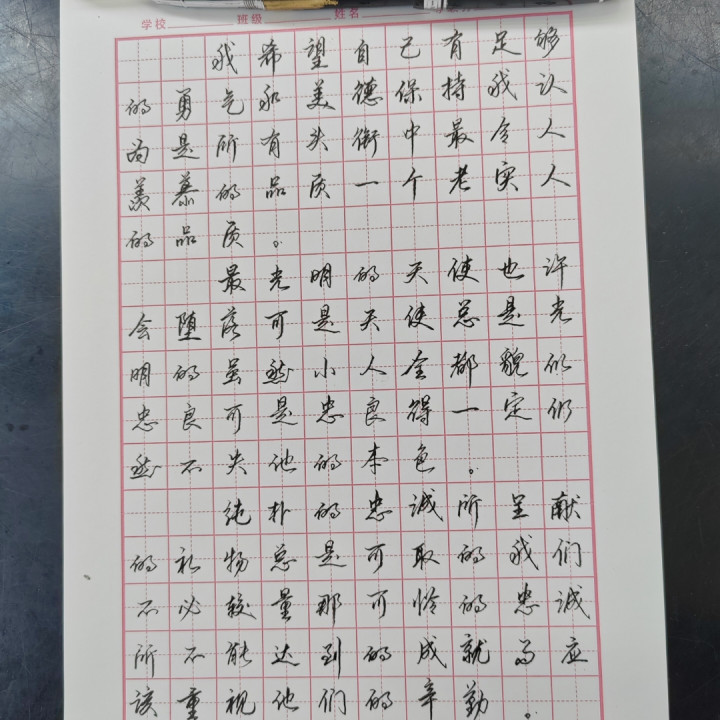 学校 班级 姓名
我希望自己有足够
的勇气和美德保持我认
为是所有头衔中最令人
羡慕的品质一个老实人
的品质。
最光明的天使也许
会堕落可是天使总是光
明的虽然小人全都貌似
忠良可是忠良得一定仍
然不失他的本色。
纯朴的忠诚所呈献
的礼物总是可取的我们
不必较量那可怜的忠诚
所不能达到的成就而应
该重视他们的辛勤。